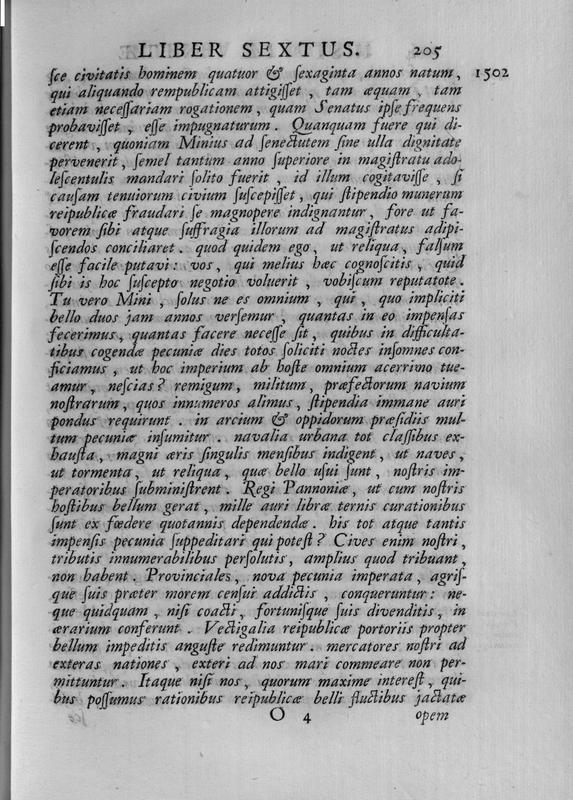 LIBER SEXTUS. 205
ſce civitatis hominem quatuor & ſexaginta annos natum, 1502
qui aliquando rempublicam attigiſſet, tam æquam, tam
etiam neceſſariam rogationem, quam Senatus ipſe frequens
probaviſſet, eſſe impugnaturum. Quanquam fuere qui di-
cerent, quoniam Minius ad ſenectutem ſine ulla dignitate
pervenerit, ſemel tantum anno ſuperiore in magiſtratu ado-
leſcentulis mandari ſolito fuerit, id illum cogitaviſſe, ſi
cauſam tenuiorum civium ſuſcepiſſet, qui ſtipendio munerum
reipublicæ fraudari ſe magnopere indignantur, fore ut fa-
vorem ſibi atque ſuffragia illorum ad magiſtratus adipi-
ſcendos conciliaret. quod quidem ego, ut reliqua, falſum
eſſe facile putavi: vos, qui melius hæc cognoſcitis, quid
ſibi is hoc ſuſcepto negotio voluerit, vobiſcum reputatote.
Tu vero Mini, ſolus ne es omnium, qui, quo impliciti
bello duos jam annos verſemur, quantas in eo impenſas
fecerimus, quantas facere neceſſe ſit, quibus in difficulta-
tibus cogendæ pecuniæ dies totos ſoliciti noctes inſomnes con-
ficiamus, ut hoc imperium ab hoſte omnium acerrimo tue-
amur, neſcias? remigum, militum, præfectorum navium
noſtrarum, quos innumeros alimus, ſtipendia immane auri
pondus requirunt. in arcium & oppidorum præſidiis mul-
tum pecuniæ inſumitur. navalia urbana tot claſſibus ex-
hauſta, magni æris ſingulis menſibus indigent, ut naves,
ut tormenta, ut reliqua, quæ bello uſui ſunt, noſtris im-
peratoribus ſubminiſtrent. Regi Pannoniæ, ut cum noſtris
hoſtibus bellum gerat, mille auri libræ ternis curationibus
ſunt ex fœdere quotannis dependendæ. his tot atque tantis
impenſis pecunia ſuppeditari qui poteſt? Cives enim noſtri,
tributis innumerabilibus perſolutis, amplius quod tribuant,
non habent. Provinciales, nova pecunia imperata, agriſ-
que ſuis præter morem cenſui addictis, conqueruntur: ne-
que quidquam, niſi coacti, fortuniſque ſuis divenditis, in
ærarium conferunt. Vectigalia reipublicæ portoriis propter
bellum impeditis anguſte redimuntur. mercatores noſtri ad
exteras nationes, exteri ad nos mari commeare non per-
mittuntur. Itaque niſi nos, quorum maxime intereſt, qui-
bus poſſumus rationibus reipublicæ belli fluctibus jactatæ
O 4 opem